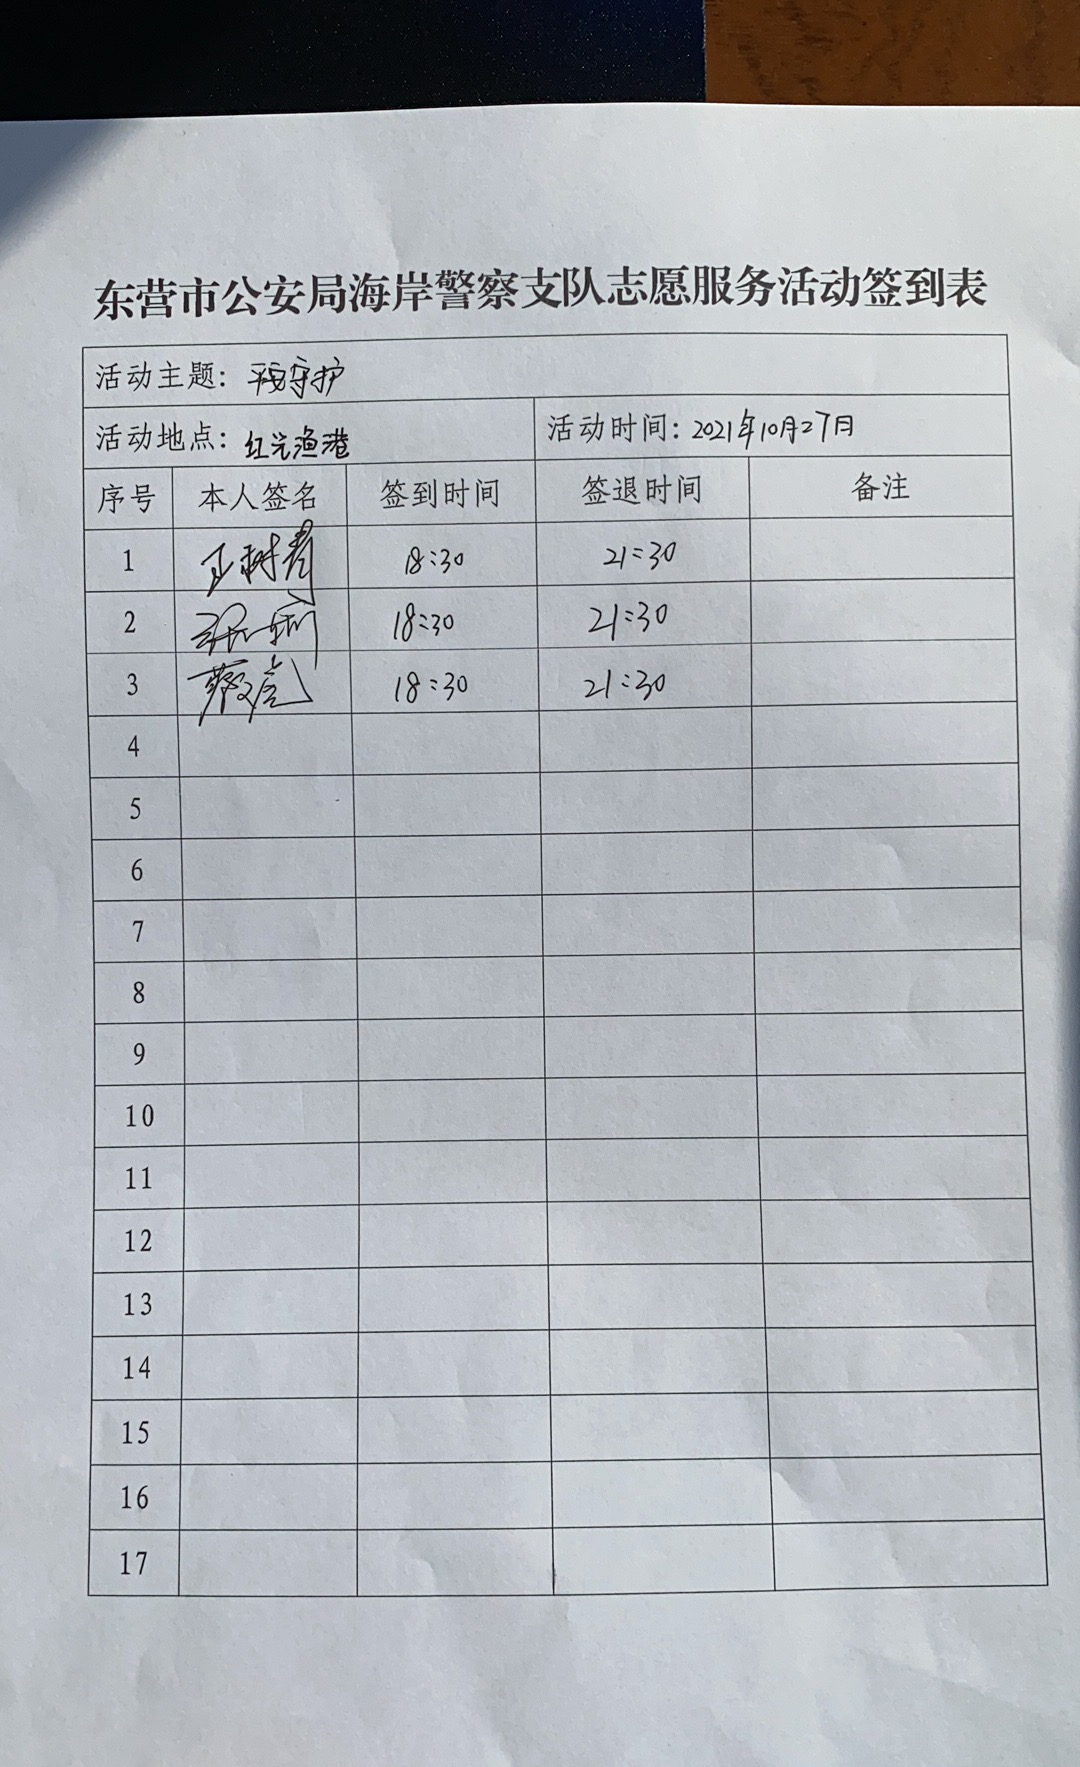 东营市公安局海岸警察支队志愿服务活动签到表
活动主题：平安守护
活动地点：红光渔港 活动时间：2021年10月27日
序号 本人签名 签到时间 签退时间 备注
1 王树青 18:30 21:30
2 18:30 21:30
3 18:30 21:30
4
5
6
7
8
9
10
11
12
13
14
15
16
17